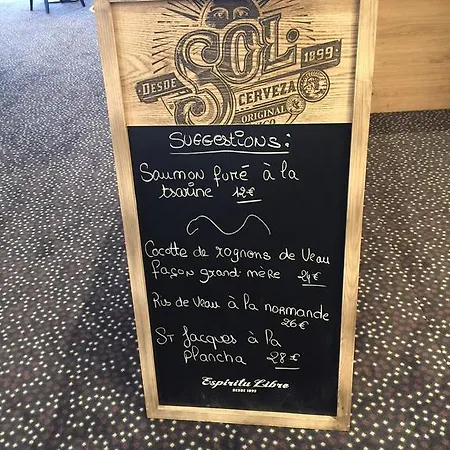 SOL
DESDE 1899
CERVEZA
ORIGINAL
SUGGEStIONS:
Saumon fumé à la
tsarine 12€
Cocotte de rognons de Veau
façon grand-mère 24€
Ris de Veau à la normande
26€
St Jacques à la
plancha 28€
Espíritu Libre
DESDE 1899